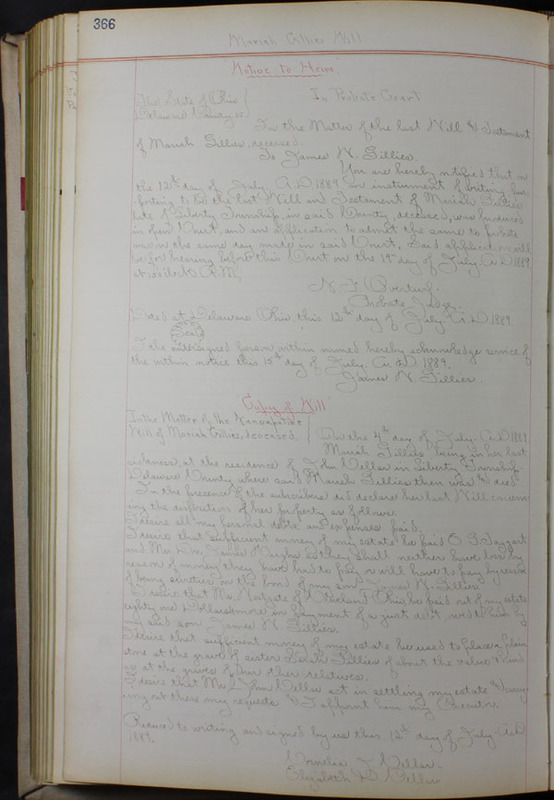 366
Mariah Gillies Will
Notice to Heirs.
The State of Ohio
Delaware County ss
In Probate Court
In the Matter of the last Will & Testament
of Mariah Gillies, deceased.
To James N. Gillies.
You are hereby notified that on
the 12th day of July, A.D. 1889 an instrument of writing pur-
porting to be the last Will and Testament of Mariah Gillies
late of Liberty Township, in said County, deceased, was produced
in open Court, and an application to admit the same to probate
was on the same day made in said Court. Said application will
be for hearing before this Court on the 19th day of July A.D. 1889
at o'clock A.M.
N. F. Overturf.
Probate Judge.
Dated at Delaware, Ohio this 12th day of July A.D. 1889
Seal
I the undersigned person within named hereby acknowledge service of
the within notice this 15th day of July. A.D. 1889.
James N. Gillies.
Copy of Will
In the Matter of the Nuncupative
Will of Mariah Gillies, deceased.
On the 4th day of July A.D. 1889
Mariah Gillies being in her last
sickness, at the residence of John Weller in Liberty Township
Delaware County where said Mariah Gillies then was & died
In the presence of the subscribers did declare her last Will concern-
ing the disposition of her property as follows.
I desire all my personal debts and expenses paid.
I desire that sufficient money of my estate be paid O. G. Taggart
and Mr. James Vaughn so they shall neither have loss by
reason of money they have had to pay or will have to pay by reason
of being sureties on the bond of my son James N. Gillies.
I desire that Mr. of Ohio be paid out of my estate
eighty one Dollars & more in payment of a just debt by
my said son James N. Gillies.
I desire that sufficient money of my estate be used to place a plain
stone at the grave of sister Gillies of about the value & kind
as at the graves of her other relatives.
I desire that Mr. John Weller act in settling my estate & carry-
ing out these my requests & I appoint him my Executor.
Reduced to writing and signed by us this 12th day of July A.D
1889.
Cornelia J. Weller.
Elizabeth D.